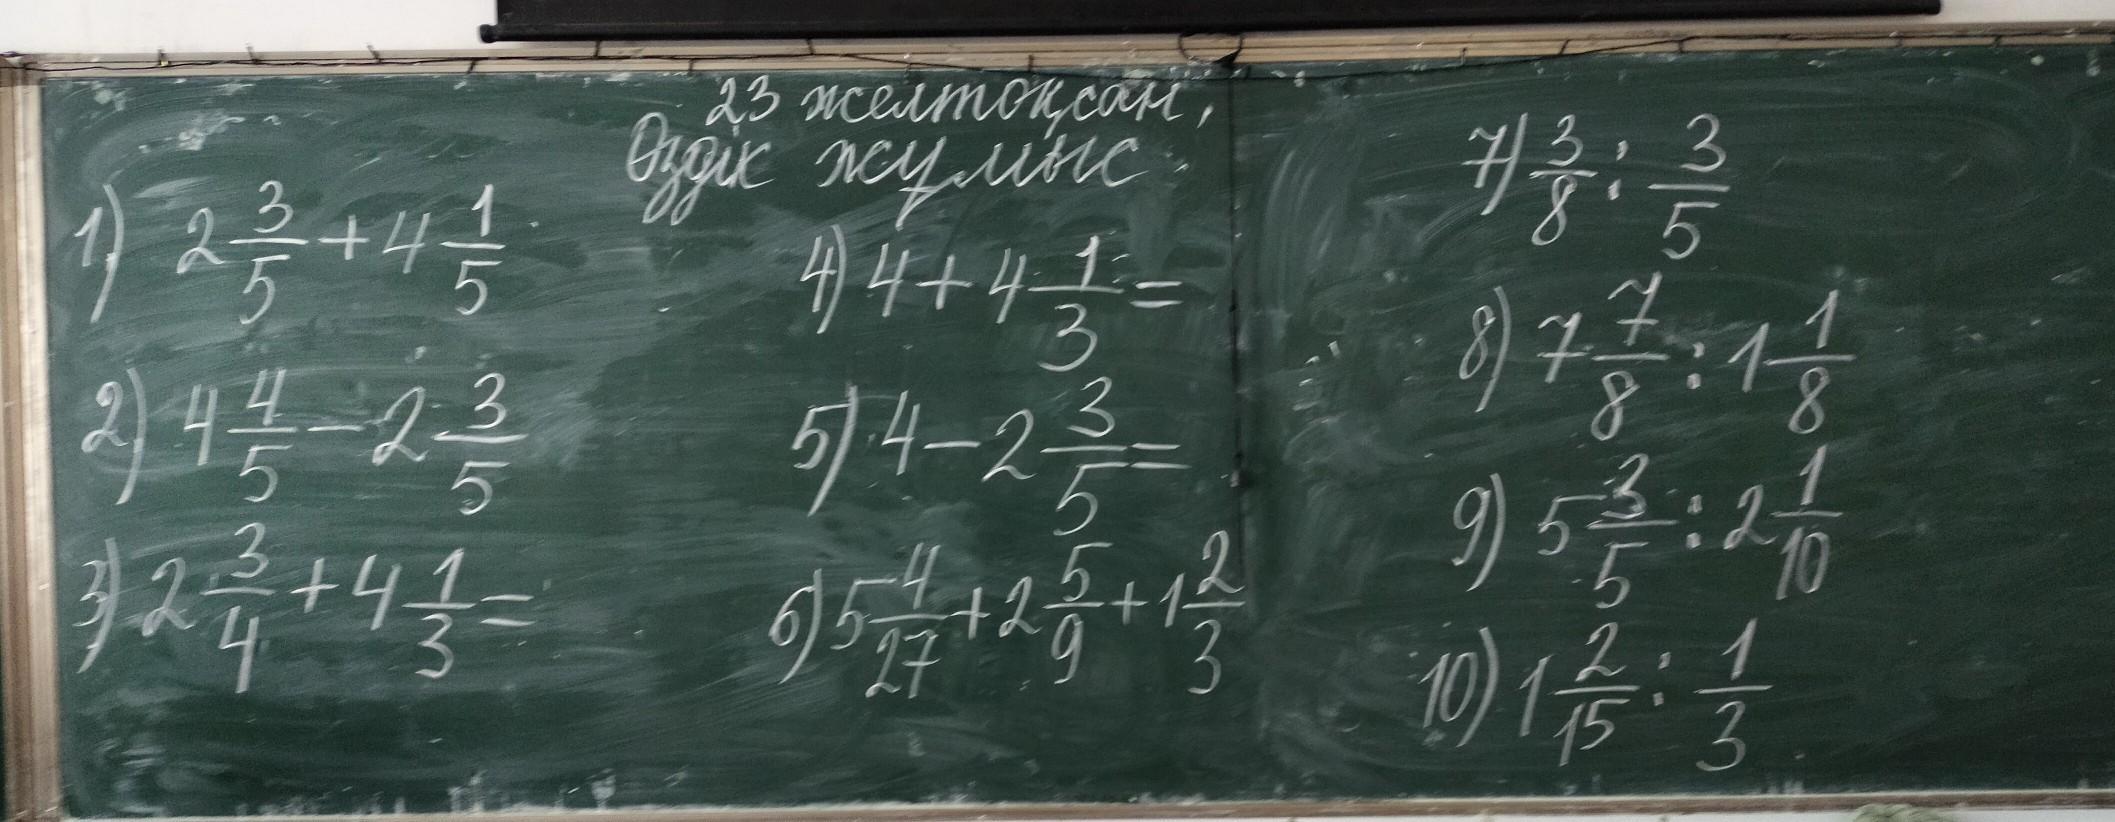 23 желтоқсан,
Өздік жұмыс
1) 2 3/5 + 4 1/5
2) 4 4/5 - 2 3/5
3) 2 3/4 + 4 1/3 =
4) 4 + 4 1/3 =
5) 4 - 2 3/5 =
6) 5 4/27 + 2 5/9 + 1 2/3
7) 3/8 : 3/5
8) 7 7/8 : 1 1/8
9) 5 3/5 : 2 1/10
10) 1 2/15 : 1/3